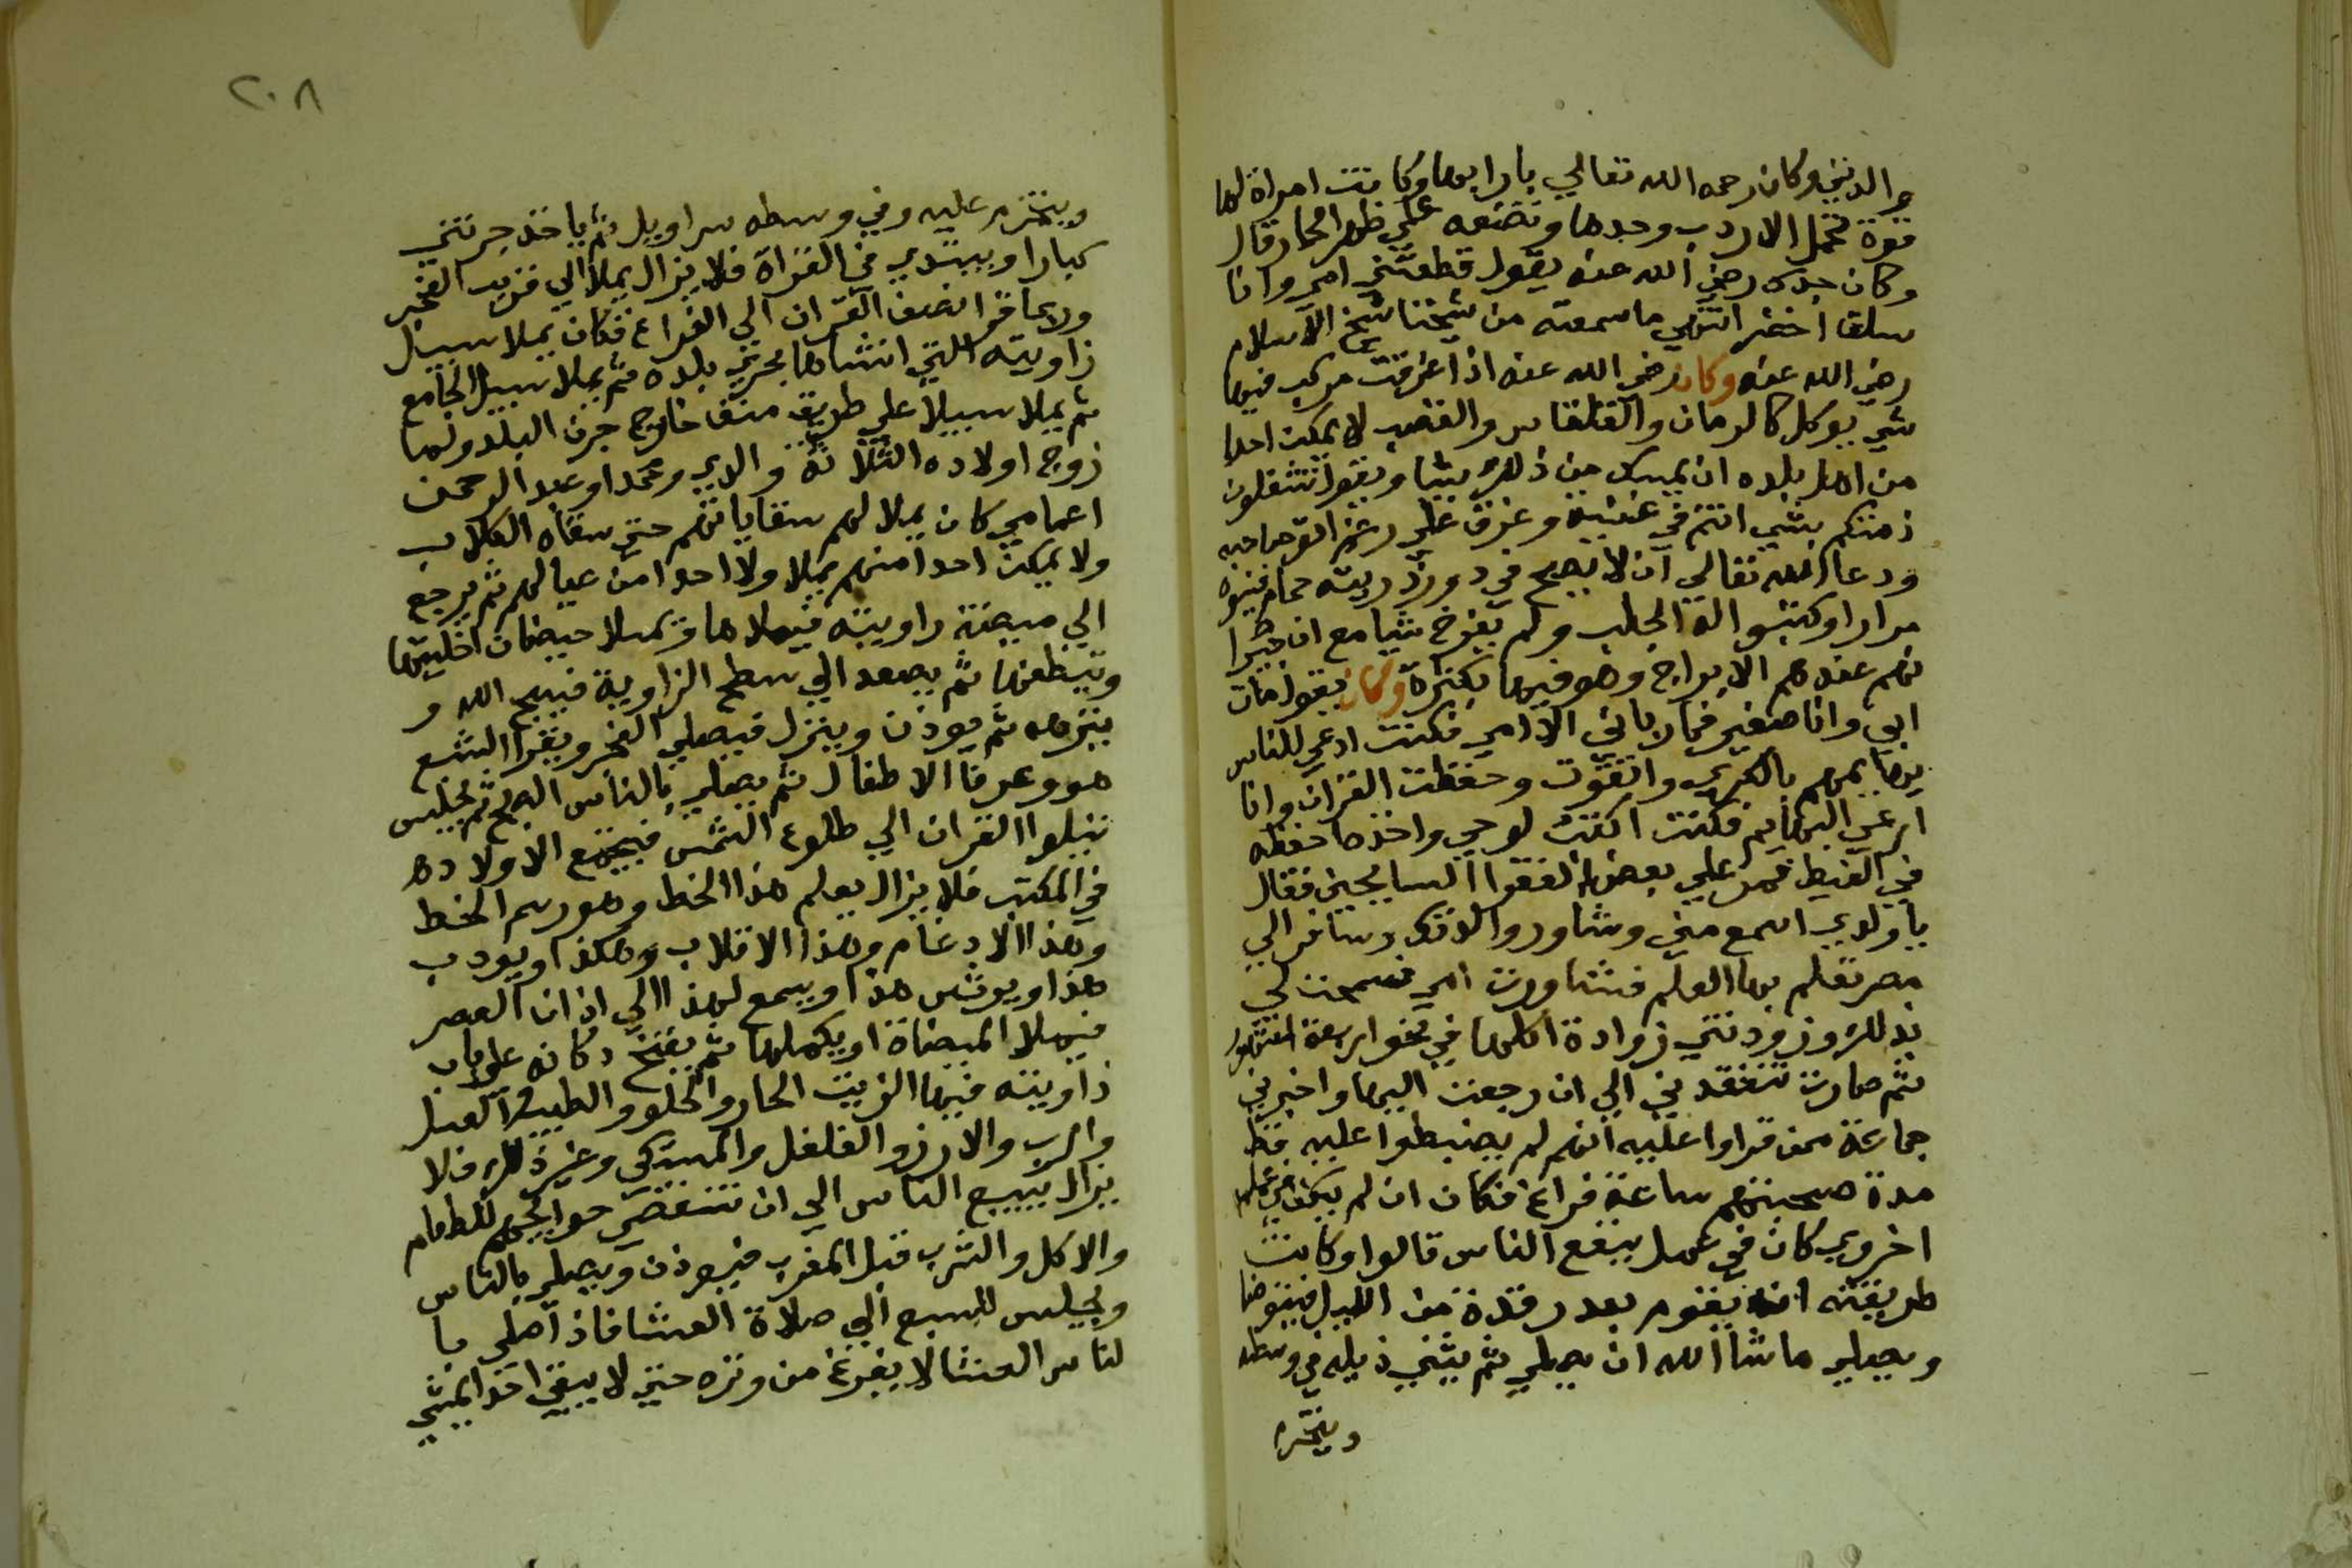 والديني وكان رحمه الله تعالي بارا بها وكانت امراة لها
قوة تحمل الاردب وحدها وتضعه علي ظهر الحمار قال
وكان جدي رضي الله عنه يقول قطعتني امي وانا
سلقا اخضر انتهي ما سمعته من شيخنا شيخ الاسلام
رضي الله عنه وكان رضي الله عنه اذا غرقت مركب فيها
شي يوكل كالرمان والقلقاس والقصب لا يمكن احدا
من اهل بلده ان يمسك من ذلك شيا ويقول تشغلون
ذمتكم بشي انتم في غنية وغرق علي رغم انف صاحبه
ودعا الله تعالي ان لا يصح في دور ذريته حمام فبنوه
مرارا وكتبوا له الجلب ولم يفرخ شيا مع ان جيرا
نهم عندهم الابراج وهو فيها بكثرة وكان يقول مات
ابي وانا صغير فما رباني الا امي فكنت ارعي للناس
بهايمهم بالكري واتقوت وحفظت القران وانا
ارعي البهايم فكنت اكتب لوحي واخذ ما حفظه
في الغيط فمر علي بعض الفقرا السايحين فقال
يا ولدي اسمع مني وشاور والدتك وسافر الي
مصر تعلم بها العلم فشاورت امي فسمحت لي
بذلك وزودتني زوادة اكلها في نحو اربعة اشهر
ثم صارت تتفقدني الي ان رجعت اليها واخبرني
جماعة ممن قراوا عليه انهم لم يضبطوا عليه قط
مدة صحبتهم ساعة فراغ فكان ان لم يكن في عمل
اخروي كان في عمل ينفع الناس قالوا وكانت
طريقته انه يقوم بعد رقدة من الليل فيتوضا
ويصلي ما شا الله ان يصلي ثم يثني ذيله في وسطه
ويتحزم
٢٠٨
ويتحزم عليه وفي وسطه سراويل ثم ياخذ جرتين
كبارا ويبتدي في القراة فلا يزال يملا الي قريب الفجر
وربما قرا نصف القران الي الفراغ فكان يملا سبيل
زاويته التي انشاها بحري بلده ثم يملا سبيل الجامع
ثم يملا سبيلا علي طريق منف خارج جرن البلد ولما
زوج اولاده الثلاثة والدي ومحمدا وعبد الرحمن
اعمامي كان يملا لهم سقاياتهم حتي سقاه الكلاب
ولا يمكن احدا منهم يملا ولا احدا من عيالهم ثم يرجع
الي ميضنة زاويته فيملاها ويملا حيضان اخليتها
وينظفها ثم يصعد الي سطح الزاوية فيسبح الله و
ينزهه ثم يوذن وينزل فيصلي الفجر ويقرا السبع
هو وعرفا الاطفال ثم يصلي بالناس الصبح ثم يجلس
يتلوا القران الي طلوع الشمس فيجتمع الاولاده
في المكتب فلا يزال يعلم هذا الخط وهو رسم الخط
وهذا الادغام وهذا الاقلاب وهكذا ويودب
هذا ويرشد هذا ويسمع لهذا الي اذان العصر
فيملا الميضاة او يكملها ثم يفتح دكانه علي باب
زاويته فيها الزيت الحار والحلو والطيب والعسل
والرب والارز والفلفل والمستكي وغير ذلك فلا
يزال يبيع الناس الي ان تنقضي حوايجهم للطعام
والاكل والشرب قبل المغرب فيوذن ويصلي بالناس
ويجلس للسبع الي صلاة العشا فاذا صلي با
لناس العشا لا يفرغ من وتره حتي لا يبقي احد يمشي